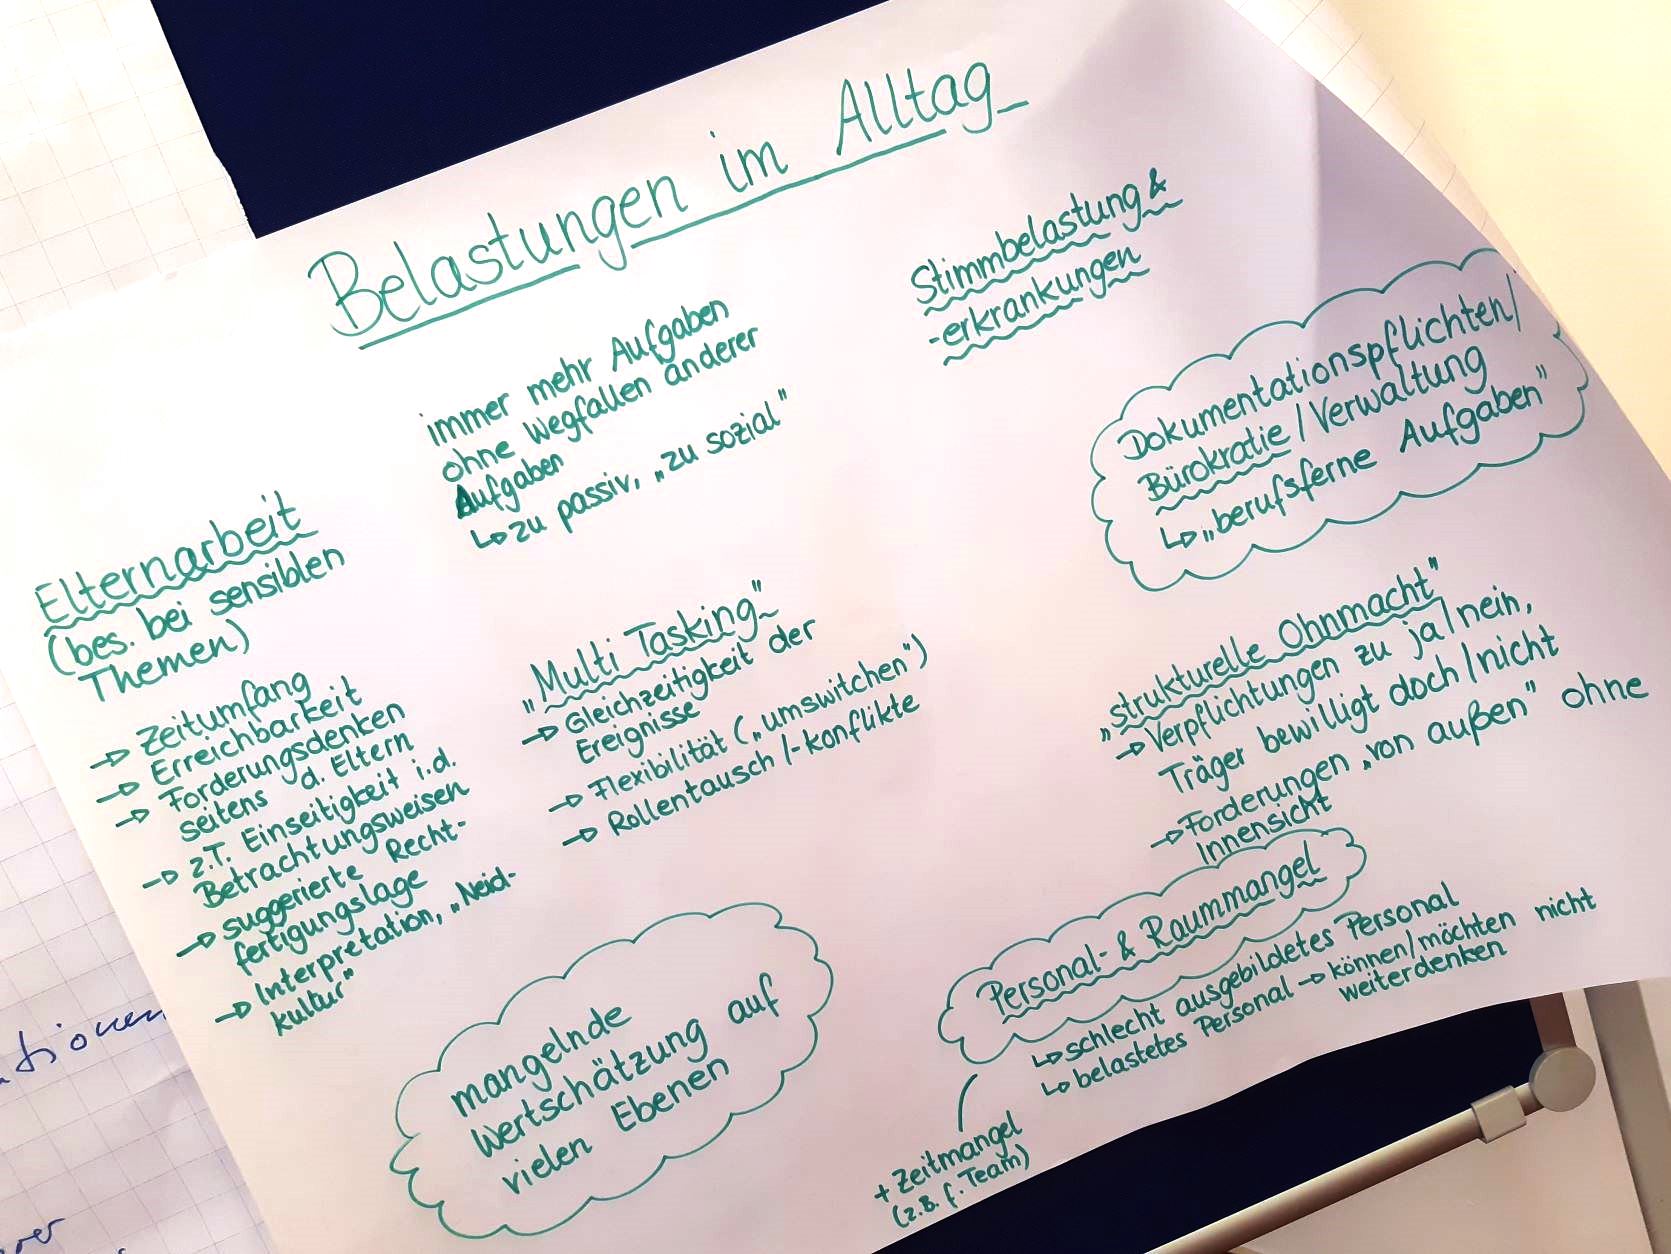 Belastungen im Alltag
immer mehr Aufgaben
ohne Wegfallen anderer
Aufgaben
↳ zu passiv, „zu sozial"
Stimmbelastung &
-erkrankungen
Dokumentationspflichten/
Bürokratie/Verwaltung
↳ „berufsferne Aufgaben"
Elternarbeit
(bes. bei sensiblen
Themen)
→ Zeitumfang
→ Erreichbarkeit
→ Forderungsdenken
seitens d. Eltern
→ z.T. Einseitigkeit i.d.
Betrachtungsweisen
→ suggerierte Recht-
fertigungslage
→ Interpretation, „Neid-
kultur"
„Multi Tasking"
→ Gleichzeitigkeit der
Ereignisse
→ Flexibilität („umswitchen")
→ Rollentausch/-konflikte
„strukturelle Ohnmacht"
→ Verpflichtungen zu ja/nein,
Träger bewilligt doch/nicht
→ Forderungen „von außen" ohne
Innensicht
mangelnde
Wertschätzung auf
vielen Ebenen
Personal- & Raummangel
↳ schlecht ausgebildetes Personal
↳ belastetes Personal → können/möchten nicht
weiterdenken
+ Zeitmangel
(z.B. f. Team)